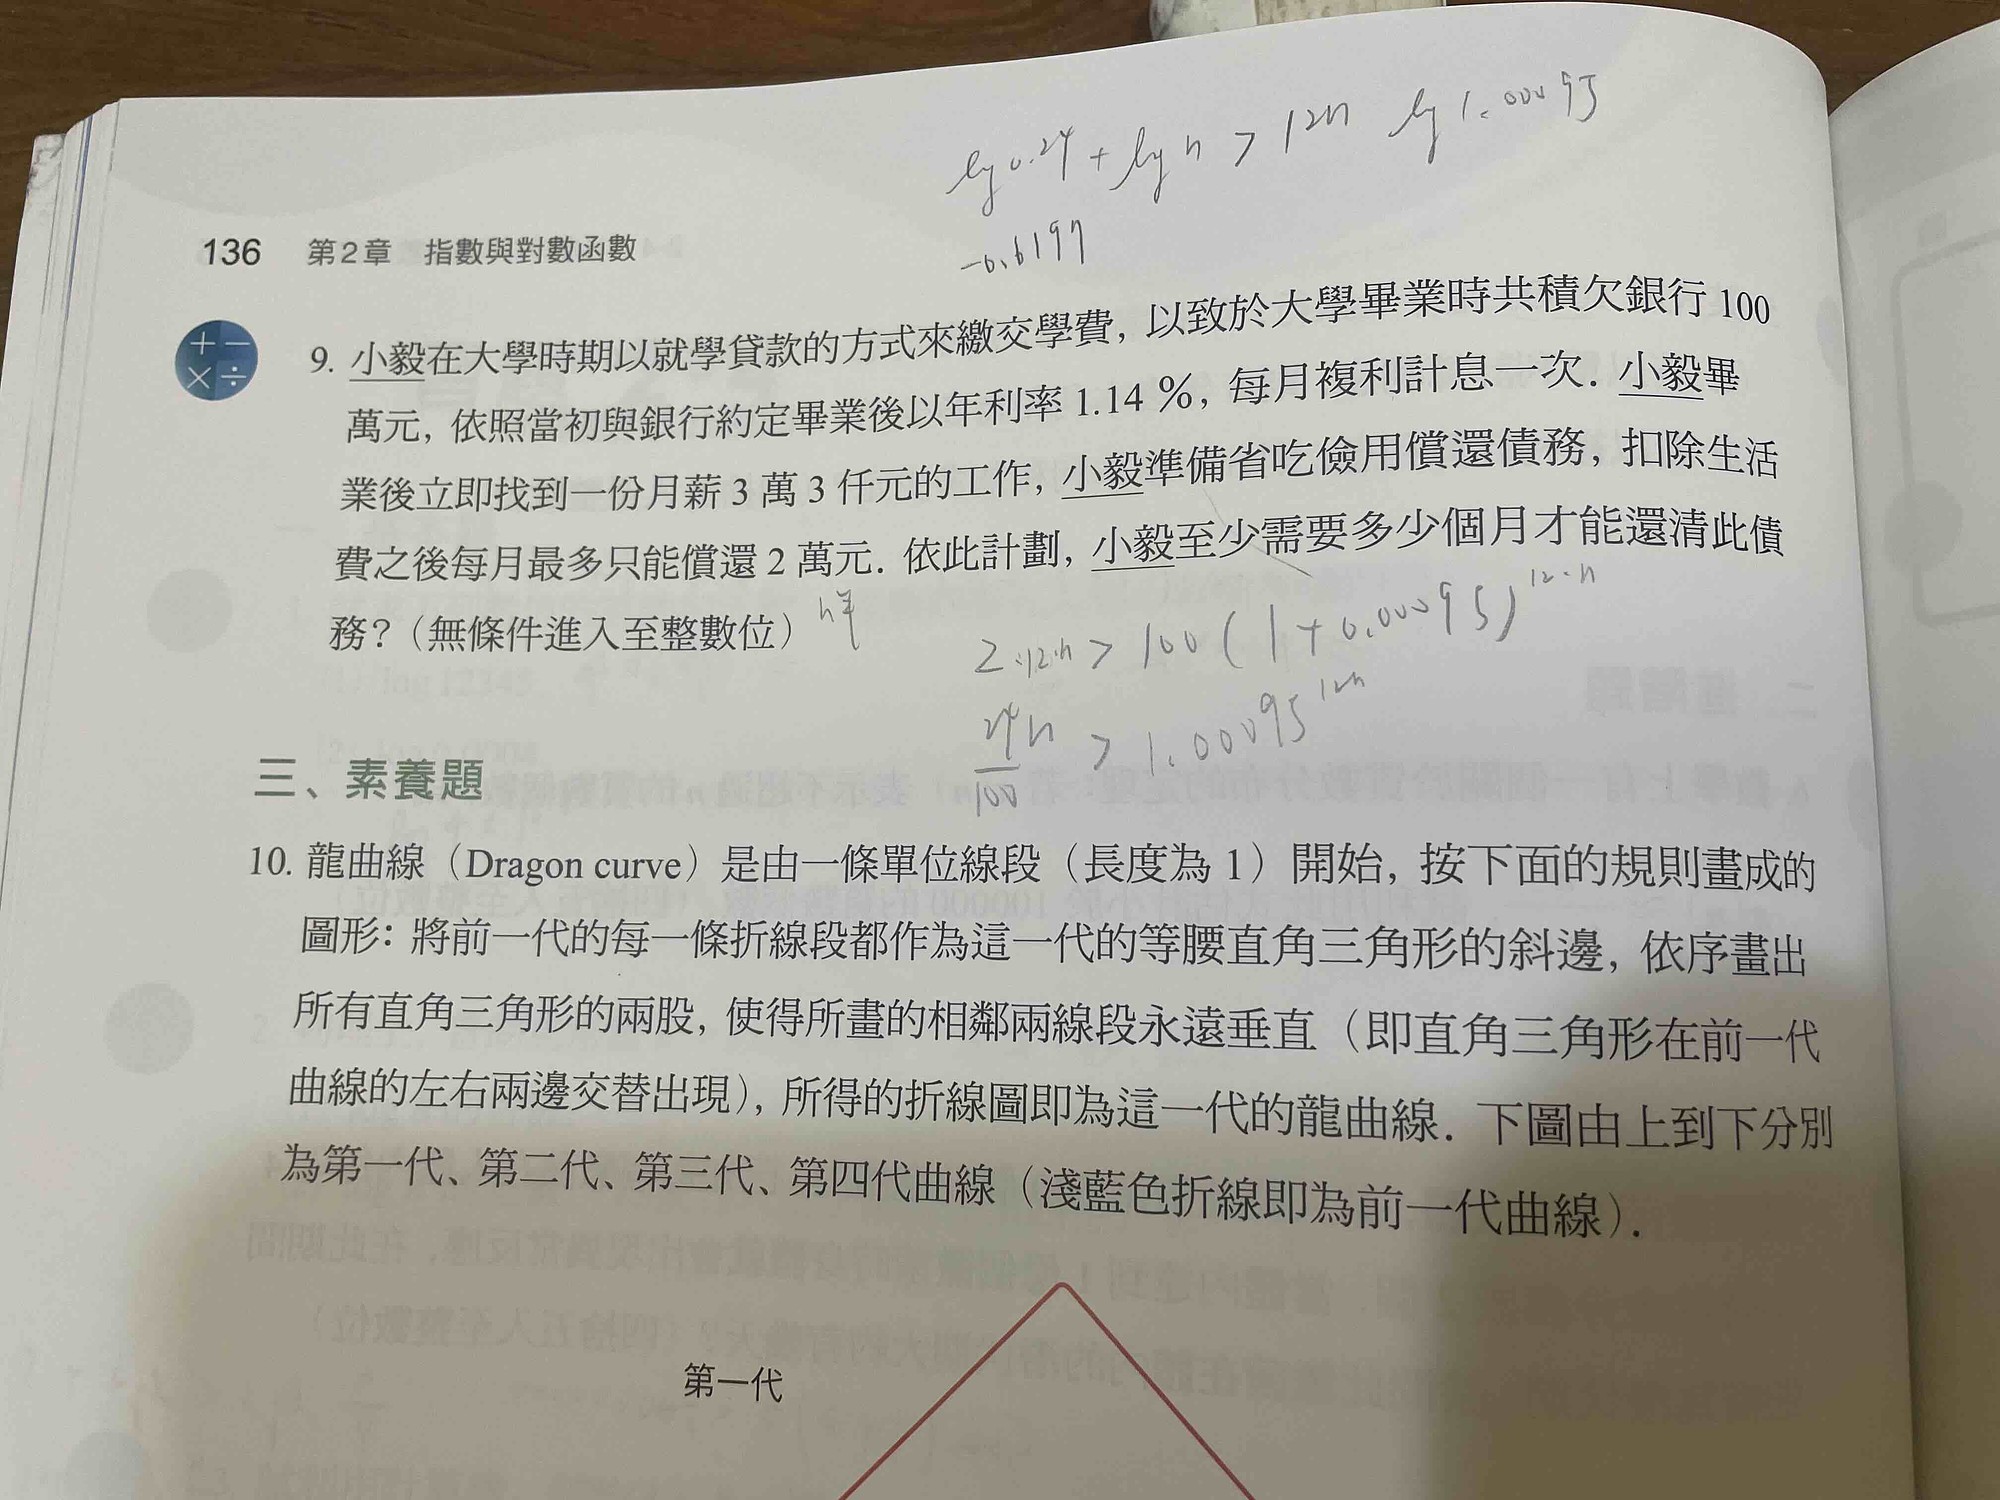 lg 0.24 + lg n > 12n lg 1.00095
-0.6197
136 第2章 指數與對數函數
9. 小毅在大學時期以就學貸款的方式來繳交學費，以致於大學畢業時共積欠銀行 100
萬元，依照當初與銀行約定畢業後以年利率 1.14 %，每月複利計息一次．小毅畢
業後立即找到一份月薪 3 萬 3 仟元的工作，小毅準備省吃儉用償還債務，扣除生活
費之後每月最多只能償還 2 萬元．依此計劃，小毅至少需要多少個月才能還清此債
務？（無條件進入至整數位）
n年
2·12·n > 100 (1+0.00095)^12·n
24n/100 > 1.00095^12n
三、素養題
10. 龍曲線（Dragon curve）是由一條單位線段（長度為 1）開始，按下面的規則畫成的
圖形：將前一代的每一條折線段都作為這一代的等腰直角三角形的斜邊，依序畫出
所有直角三角形的兩股，使得所畫的相鄰兩線段永遠垂直（即直角三角形在前一代
曲線的左右兩邊交替出現），所得的折線圖即為這一代的龍曲線．下圖由上到下分別
為第一代、第二代、第三代、第四代曲線（淺藍色折線即為前一代曲線）．
第一代